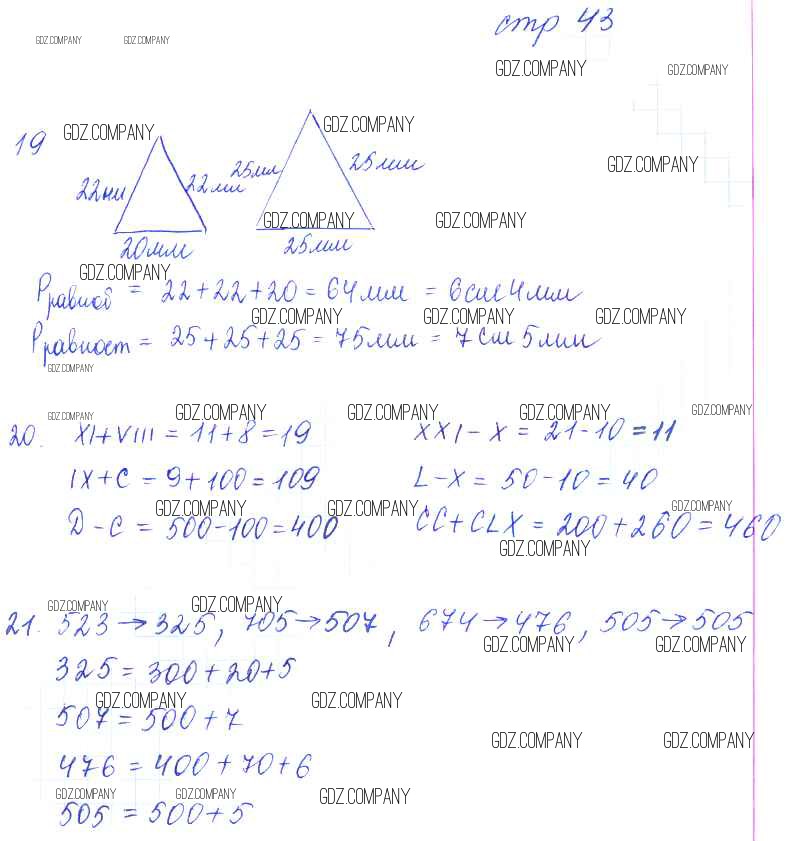 стр 43
GDZ.COMPANY GDZ.COMPANY
GDZ.COMPANY GDZ.COMPANY
19 GDZ.COMPANY GDZ.COMPANY
GDZ.COMPANY
22мм 22мм 25мм 25мм
GDZ.COMPANY GDZ.COMPANY
20мм 25мм
GDZ.COMPANY
Pравноб = 22+22+20 = 64мм = 6см 4мм
GDZ.COMPANY GDZ.COMPANY GDZ.COMPANY
Pравност = 25+25+25 = 75мм = 7см 5мм
GDZ.COMPANY
GDZ.COMPANY GDZ.COMPANY GDZ.COMPANY GDZ.COMPANY GDZ.COMPANY
20. XI+VIII = 11+8 = 19 XXI-X = 21-10 = 11
IX+C = 9+100 = 109 L-X = 50-10 = 40
GDZ.COMPANY GDZ.COMPANY GDZ.COMPANY
D-C = 500-100 = 400 CC+CLX = 200+260 = 460
GDZ.COMPANY
GDZ.COMPANY GDZ.COMPANY
21. 523→325, 705→507, 674→476, 505→505
GDZ.COMPANY GDZ.COMPANY
325 = 300+20+5
GDZ.COMPANY GDZ.COMPANY
507 = 500+7
GDZ.COMPANY GDZ.COMPANY
476 = 400+70+6
GDZ.COMPANY GDZ.COMPANY GDZ.COMPANY
505 = 500+5